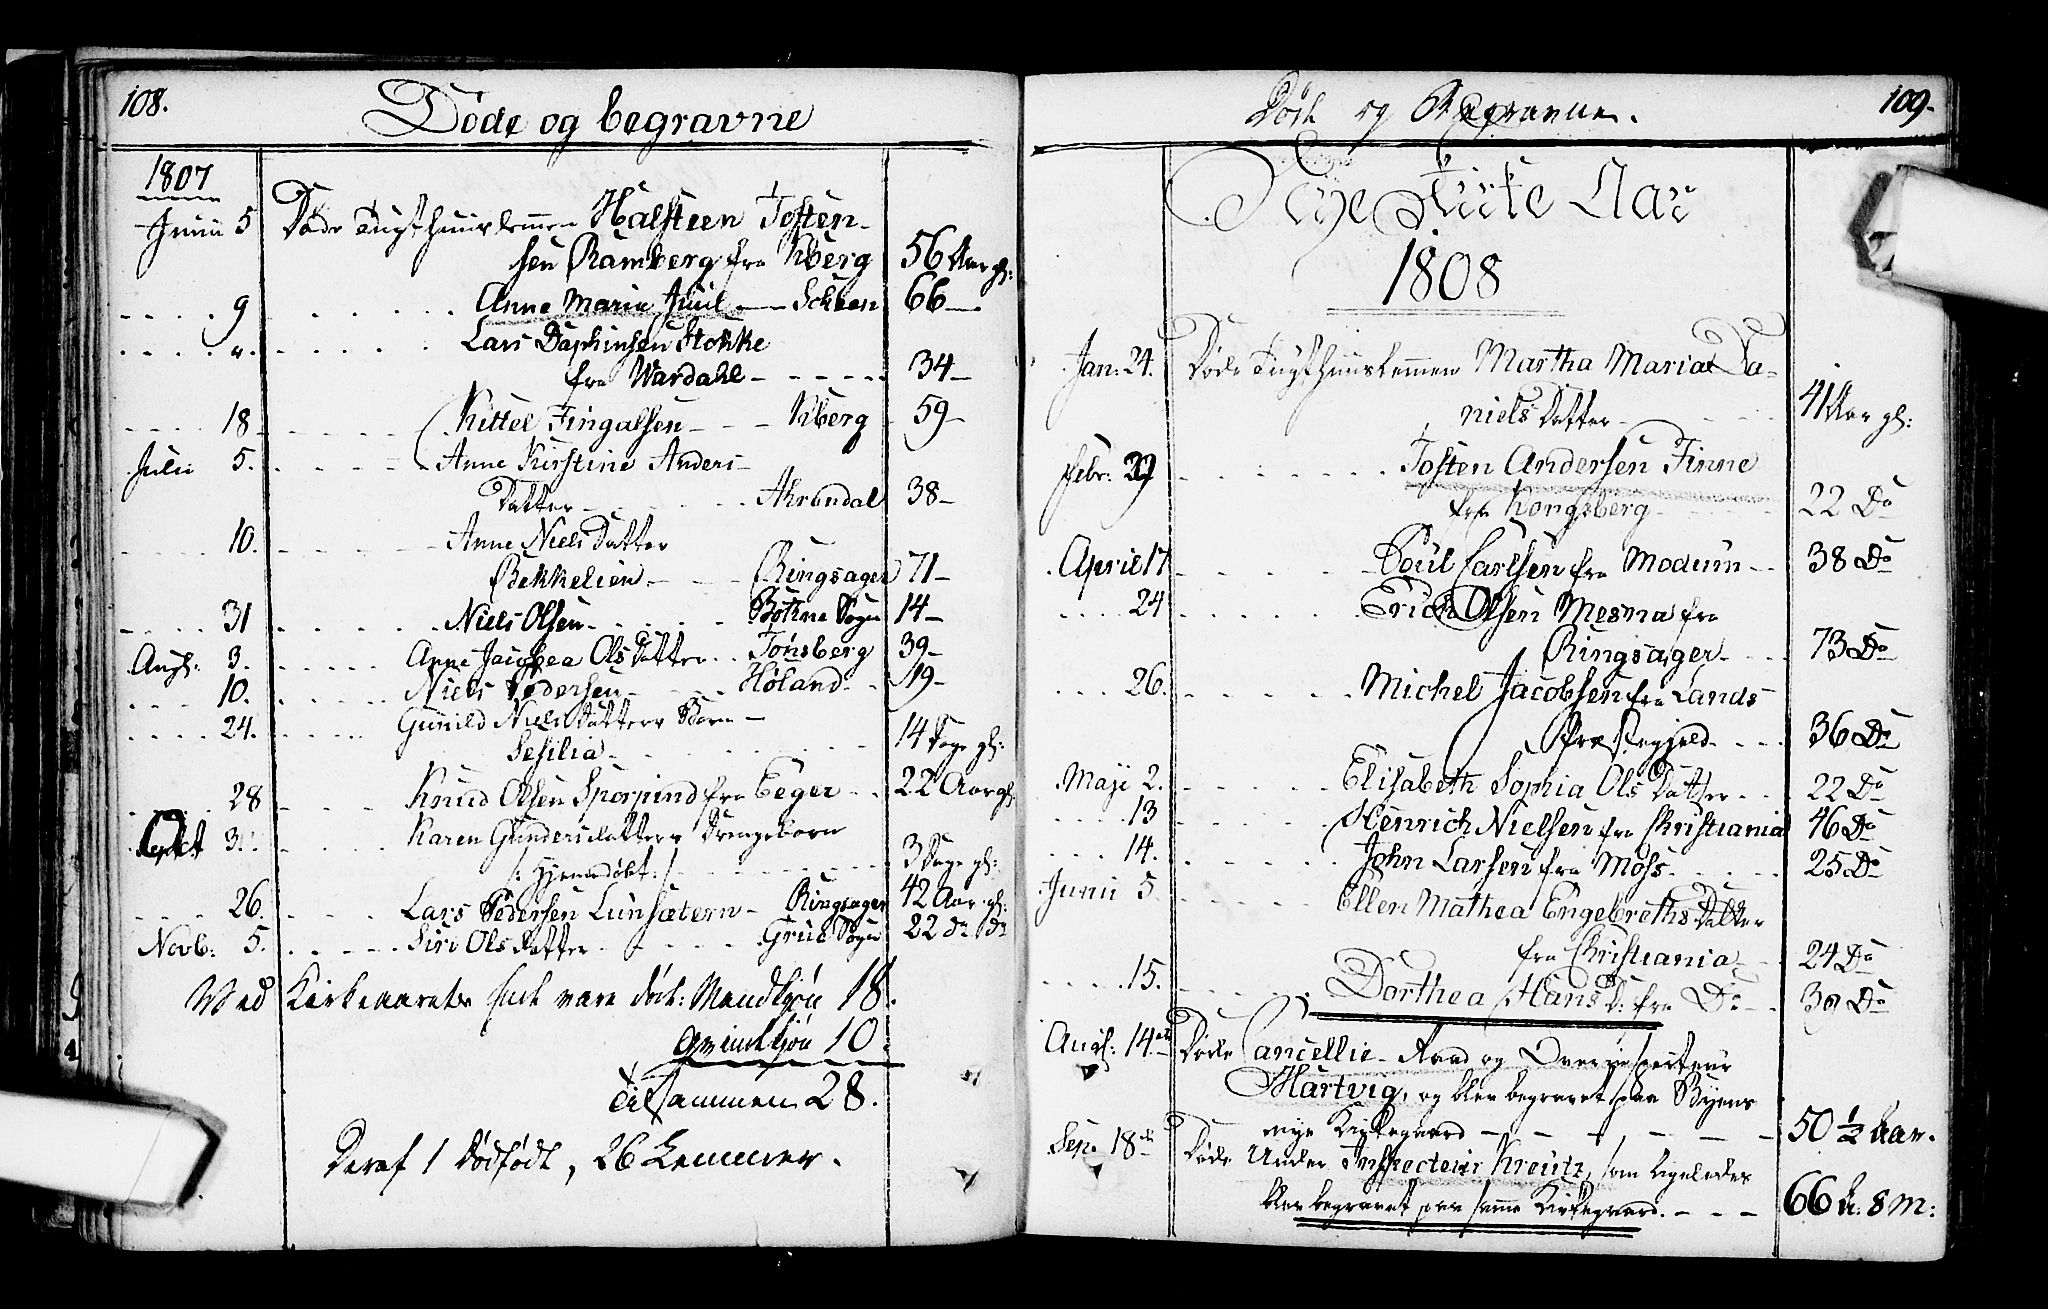 108.
Døde og begravne
1807
Junii 5 Døde Tugthuuslemmen Halsteen Tosten-
sen Ramberg fra Kberg 56 Aar gl:
9 Anne Maria Juul Scheen 66
Lars Stokke
fra Wardahl 34
18 Kittel Fingalsen Kberg 59
Julii 5. Anne Kirstine Anders
Datter Ahrendal 38
10. Anne Niels Datter
Bekkelien Ringsager 71
31 Niels Olsen Bothne Sogn 14
Aug: 3. Anne Jacobea Ols Datter Tønsberg 39
10. Niels Pedersen Høland 19
24. Gunild Niels Datters Barn
Sesilia 14 Dage gl:
28 Knud Olsen fra Eger 22 Aar gl:
Oct 31. Karen Gundersdatters Drengebarn
/: Hjemmedøbt :/ 3 Dage gl:
26. Lars Pedersen Lunsætern Ringsager 42 Aar gl:
Novb: 5. Siri Ols Datter Grue Sogn 22 Do Do
Ved Kirkeaarets Ende vare døde: Mandkjøn 18.
Qvindkjøn 10
Tilsammen 28.
Deraf 1 Dødfødt, 26 Lemmer.
109.
Døde og Begravne.
Nye Kirke Aar
1808
Jan: 24. Døde Tugthuuslemmen Martha Maria Da-
niels Datter 41 Aar gl:
Febr: 29 Tosten Andersen Finne
fra Kongsberg 22 Do
April 17 Poul Carlsen fra Modum 38 Do
24 Erich Olsen Mesna fra
Ringsager 73 Do
26. Michel Jacobsen fra Lands
Præstegjeld 36 Do
Maji 2. Elisabeth Sophia Ols Datter 22 Do
13 Henrich Nielsen fra Christiania 46 Do
14. John Larsen fra Moss 25 Do
Junii 5. Ellen Mathea Engebreths Datter
fra Christiania 24 Do
15. Dorthea Hans D: fra Do 39 Do
Aug: 14de Døde Cancellie-Raad og Overinspecteur
Hartvig, og blev begravet paa Byens
nye Kirkegaard 50 1/2 Aar.
Sep. 18de Døde Under Inspecteur Kreutz, som ligeledes
blev begravet paa samme Kirkegaard. 66 A: 8 M: